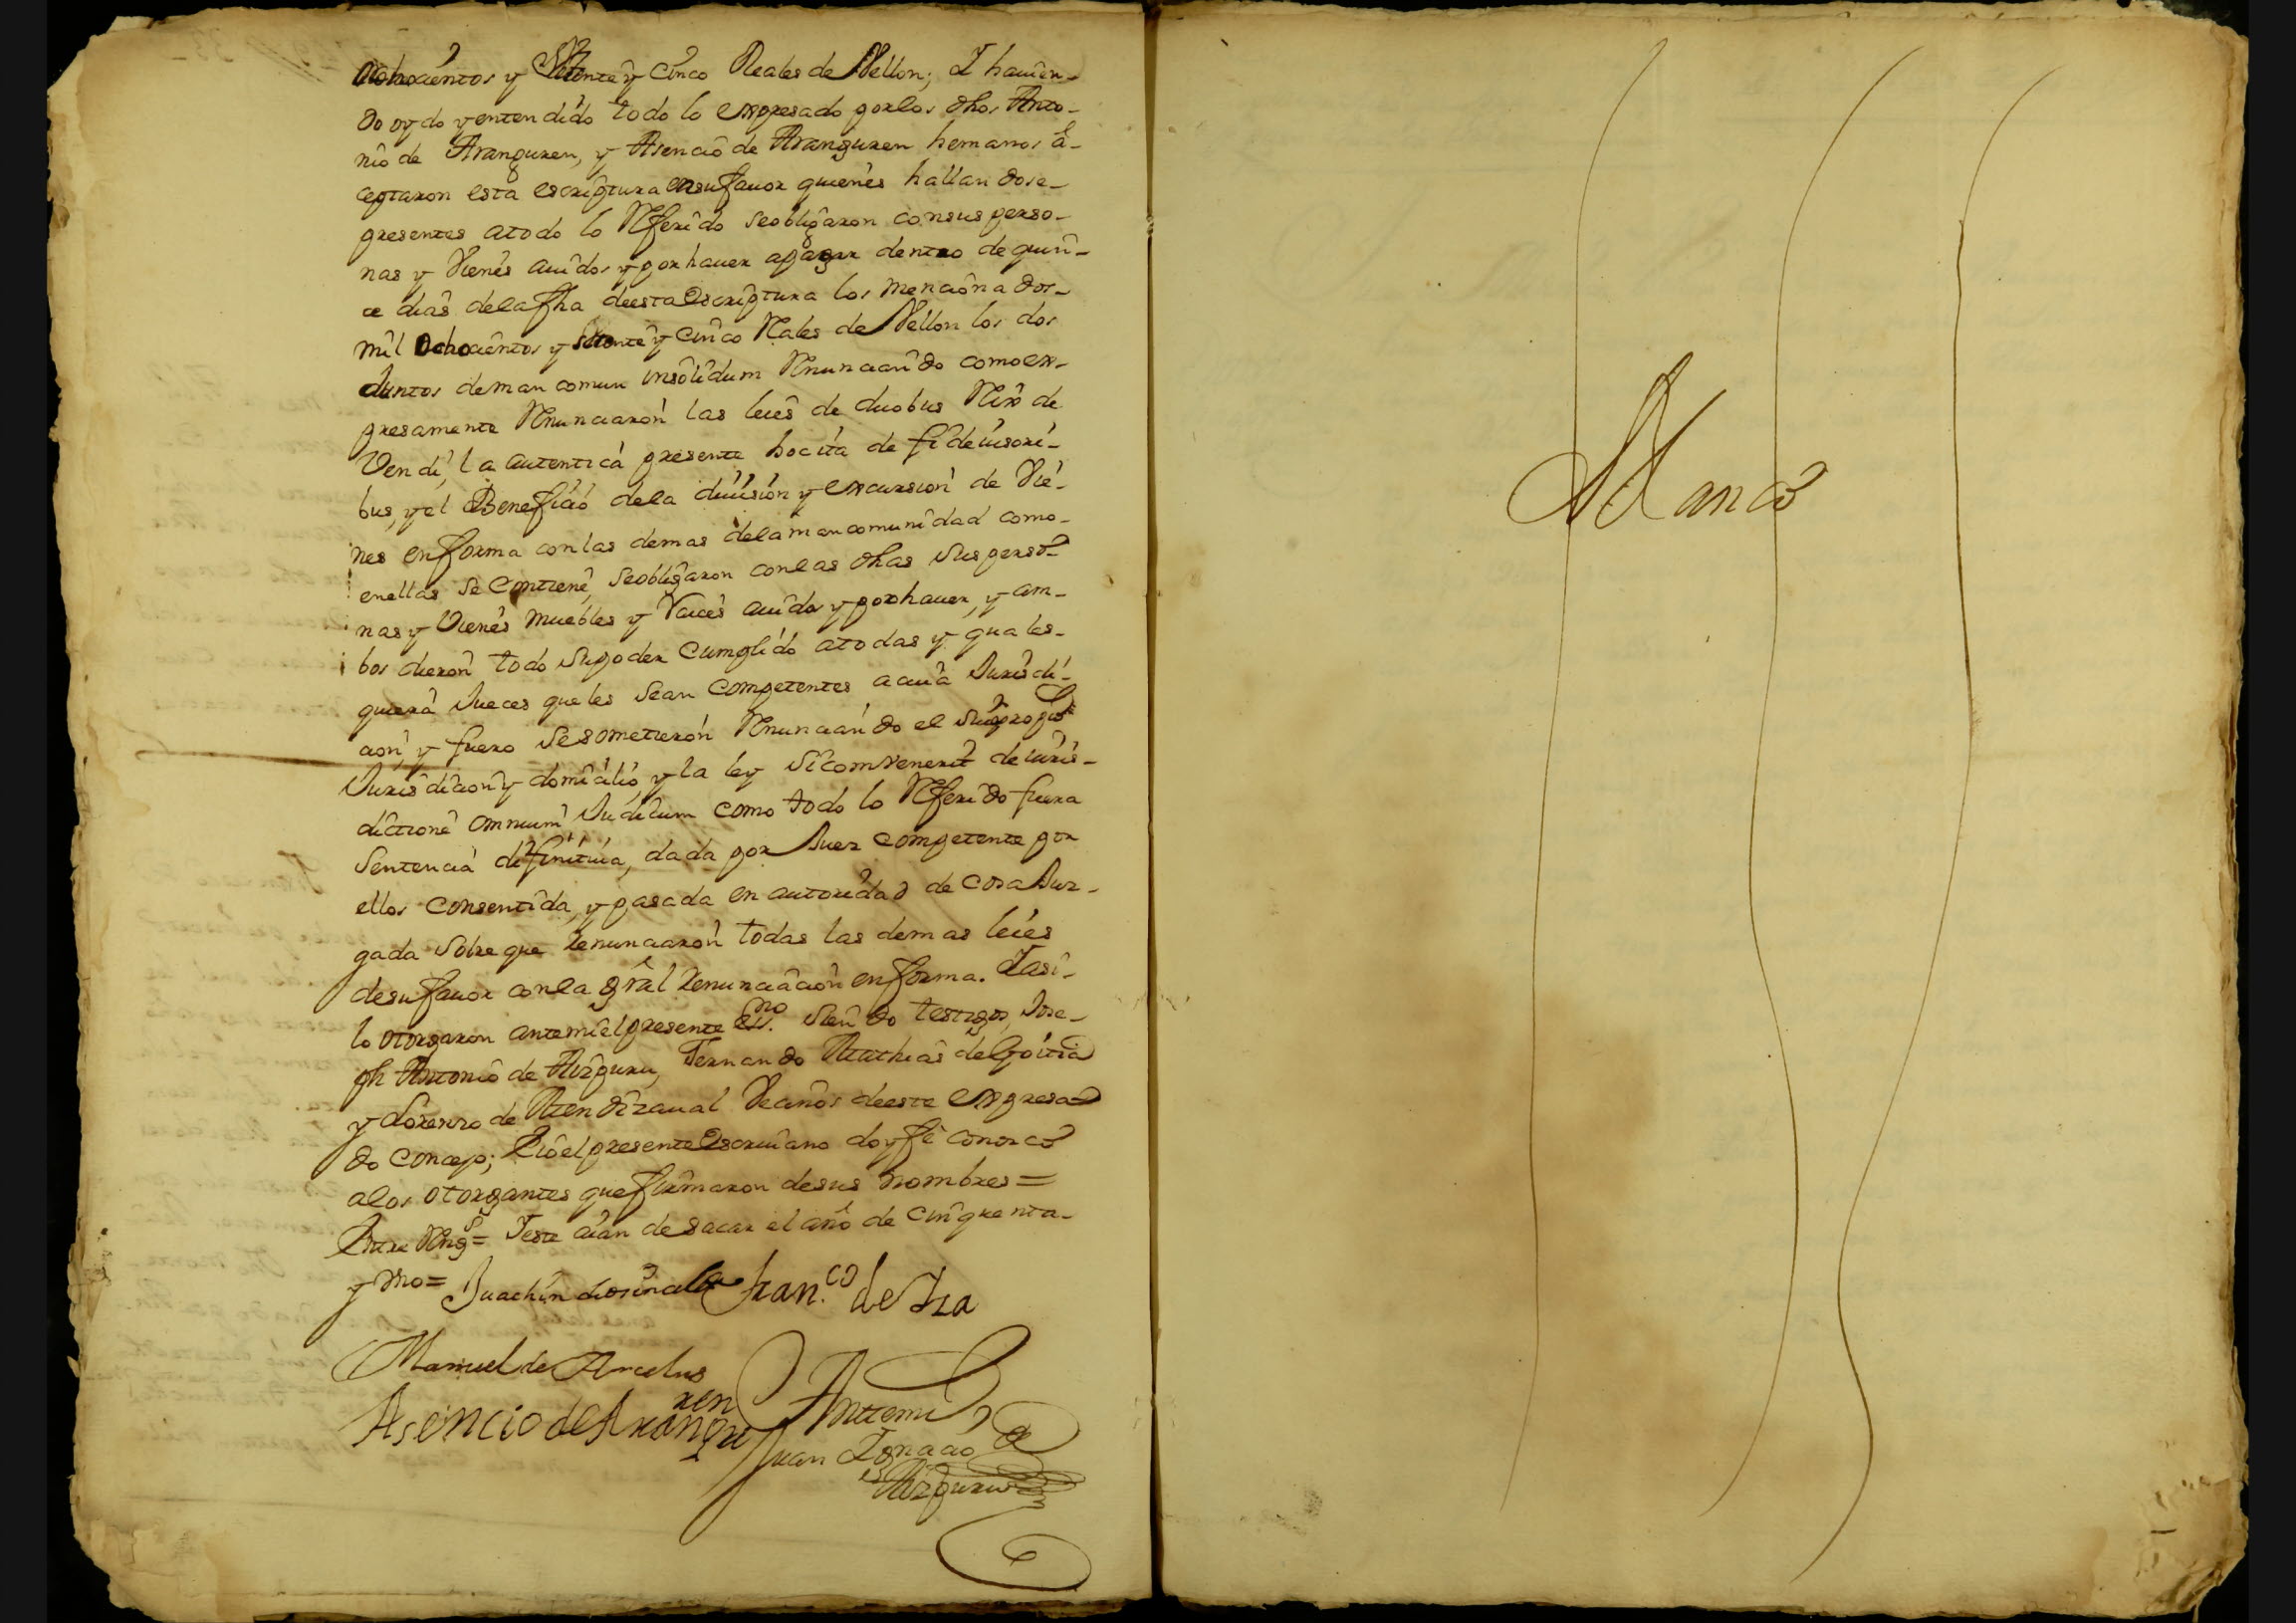 ochocientos y setenta y cinco Reales de Vellon; I hauien-
do oydo y entendido todo lo expresado por los dhos Anto-
nio de Aranguren, y Asencio de Aranguren hemanos a-
ceptaron esta escriptura en su fauor quienes hallandose-
presentes a todo lo Referido se obligaron con sus perso-
nas y Vienes auidos y por hauer a pagar dentro de quin-
ce dias de la fha de esta Escriptura los mencionados-
mil ochocientos y setenta y cinco Rales de Vellon los dos
Juntos de man comun insolidum Renunciando como ex-
presamente Renunciaron las leies de duobus Reis de
Vendi, la autentica presente hocita de fideiusori-
bus, y el Beneficio de la diuision y excursion de Vie-
nes en forma con las demas de la mancomunidad como-
en ellas se contiene, se obligaron con las dhas sus perso-
nas y Vienes muebles y Raices auidos y por hauer, y am-
bos dieron todo su poder cumplido a todas y quales-
quiera Jueces que les sean competentes a cuia Jurisdi-
cion, y fuero se sometieron Renunciando el suio propio
Jurisdicion y domicilio, y la ley sicomvenerit de iuris-
dictione omnium Judicum como todo lo Referido fuera
Sentencia difinitiua, dada por Juez competente por
ellos consentida, y pasada en autoridad de cosa Juz-
gada sobre que renunciaron todas las demas leies
de su fauor con la gral renunciacion en forma. I asi-
lo otorgaron ante mi el presente essno. siendo testigos, Jose-
ph Antonio de Aizpuru, Fernando Mathias de Goitia
y Lorenzo de Mendizaual Vecinos de este expresa-
do concejo; E io el presente Escriuano doy fe conozco
a los otorgantes que firmaron de sus nombres =
Entre Rengs = I esta aian de sacar el año de cinquenta-
y mo =
Franco de Iza
Manuel de Arcelus
Asencio de Aranguren
Ante mi
Juan Ignacio
de Aizpuru
Blanco